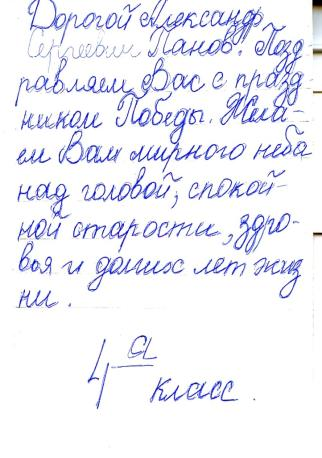 Дорогой Александр
Сергеевич Панов! Позд
равляем Вас с празд-
ником Победы. Жела-
ем Вам мирного неба
над головой, спокой-
ной старости, здро-
вья и долих лет жиз
ни.
4 а
класс.